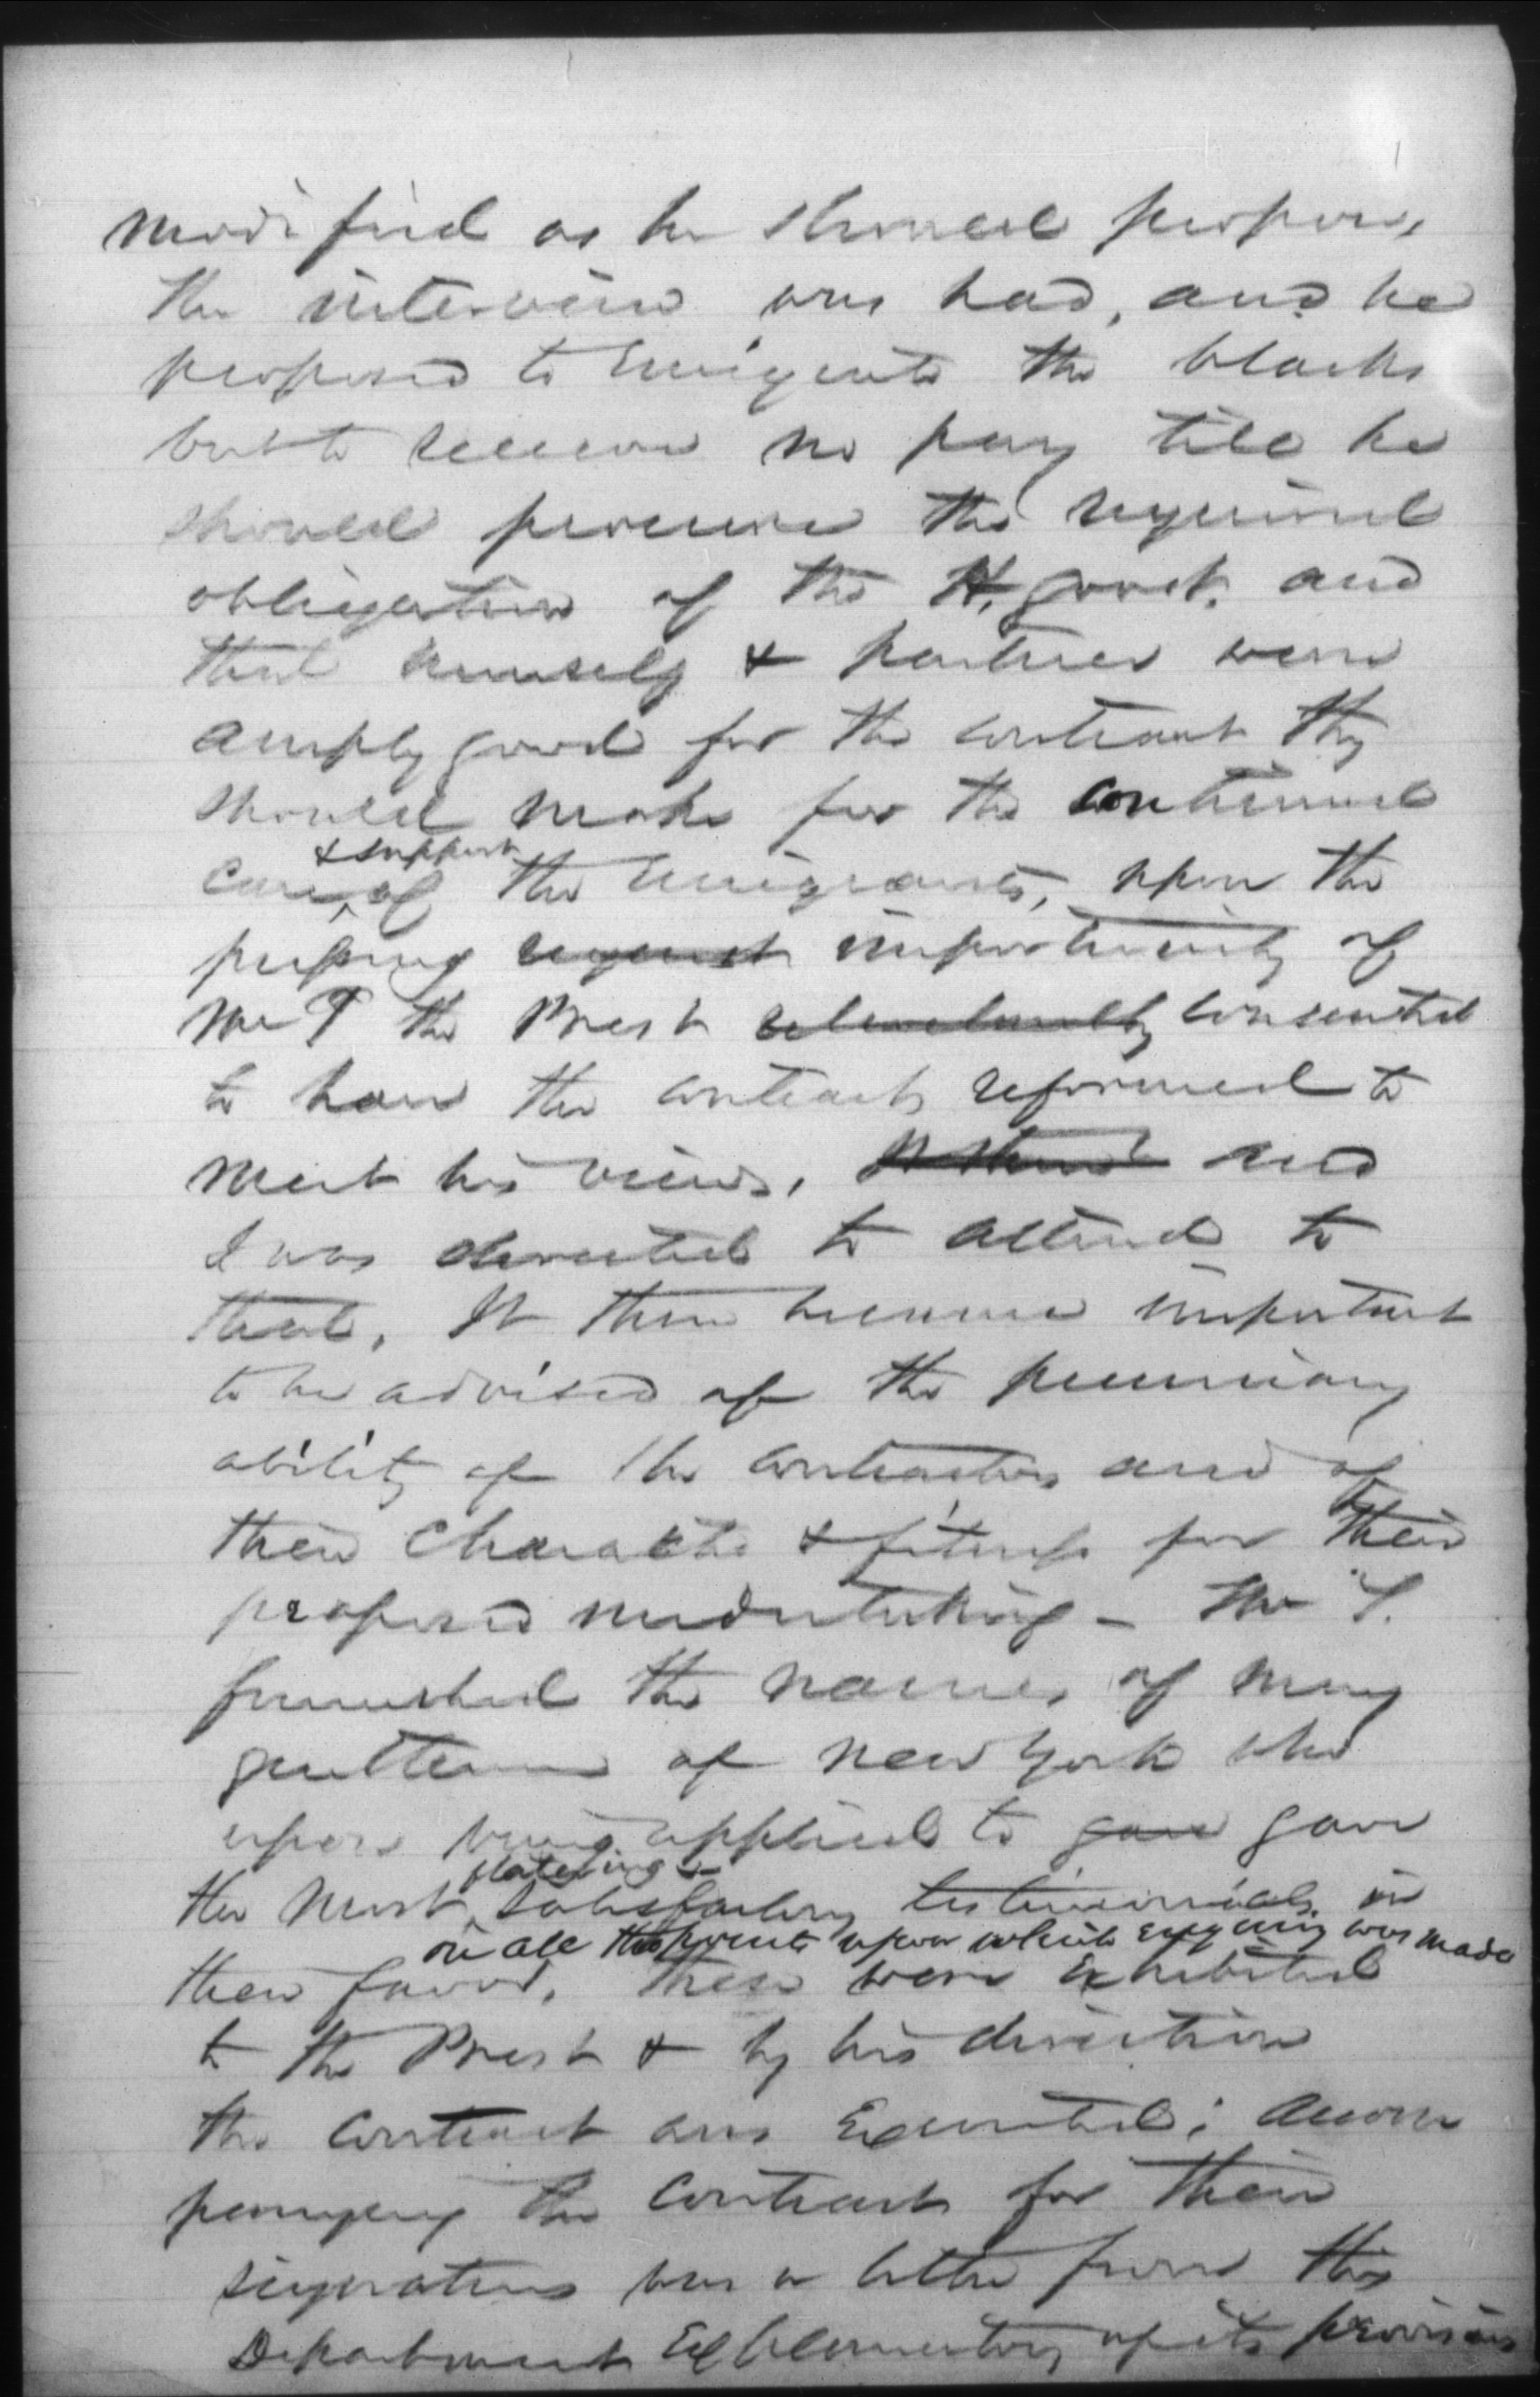 modified as he should propose,
the interview was had, and he
proposed to emigrate the blacks
but to receive no pay till he
should procure the required
obligation of the H. govt. and
that himself & partners were
amply good for the contract they
should make for the continued
& support
care of the emigrants, upon the
pressing request importunity of
Mr T the Prest reluctantly consented
to have the contract reformed to
meet his views, and
I was directed to attend to
that. It then became important
to be advised of the pecuniary
ability of the contractors and of
their character & fitness for their
proposed undertaking - Mr T.
furnished the names of many
gentlemen of New York who
upon being applied to gave gave
flatering &
the most satisfactory testimonials in
on all the points upon which enquiry was made
their favor. These were exhibited
to the Prest & by his direction
the contract was Executed; accom
panying the contract for their
signatures was a letter from this
Department Explanatory of its provisions